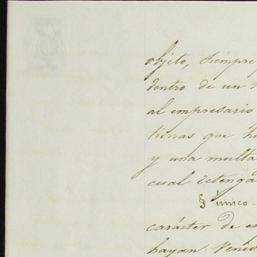 objeto, siempre
dentro de un
al empresario
tierras que
y una multa
cual retenga
§ único
carácter de
hayan venid